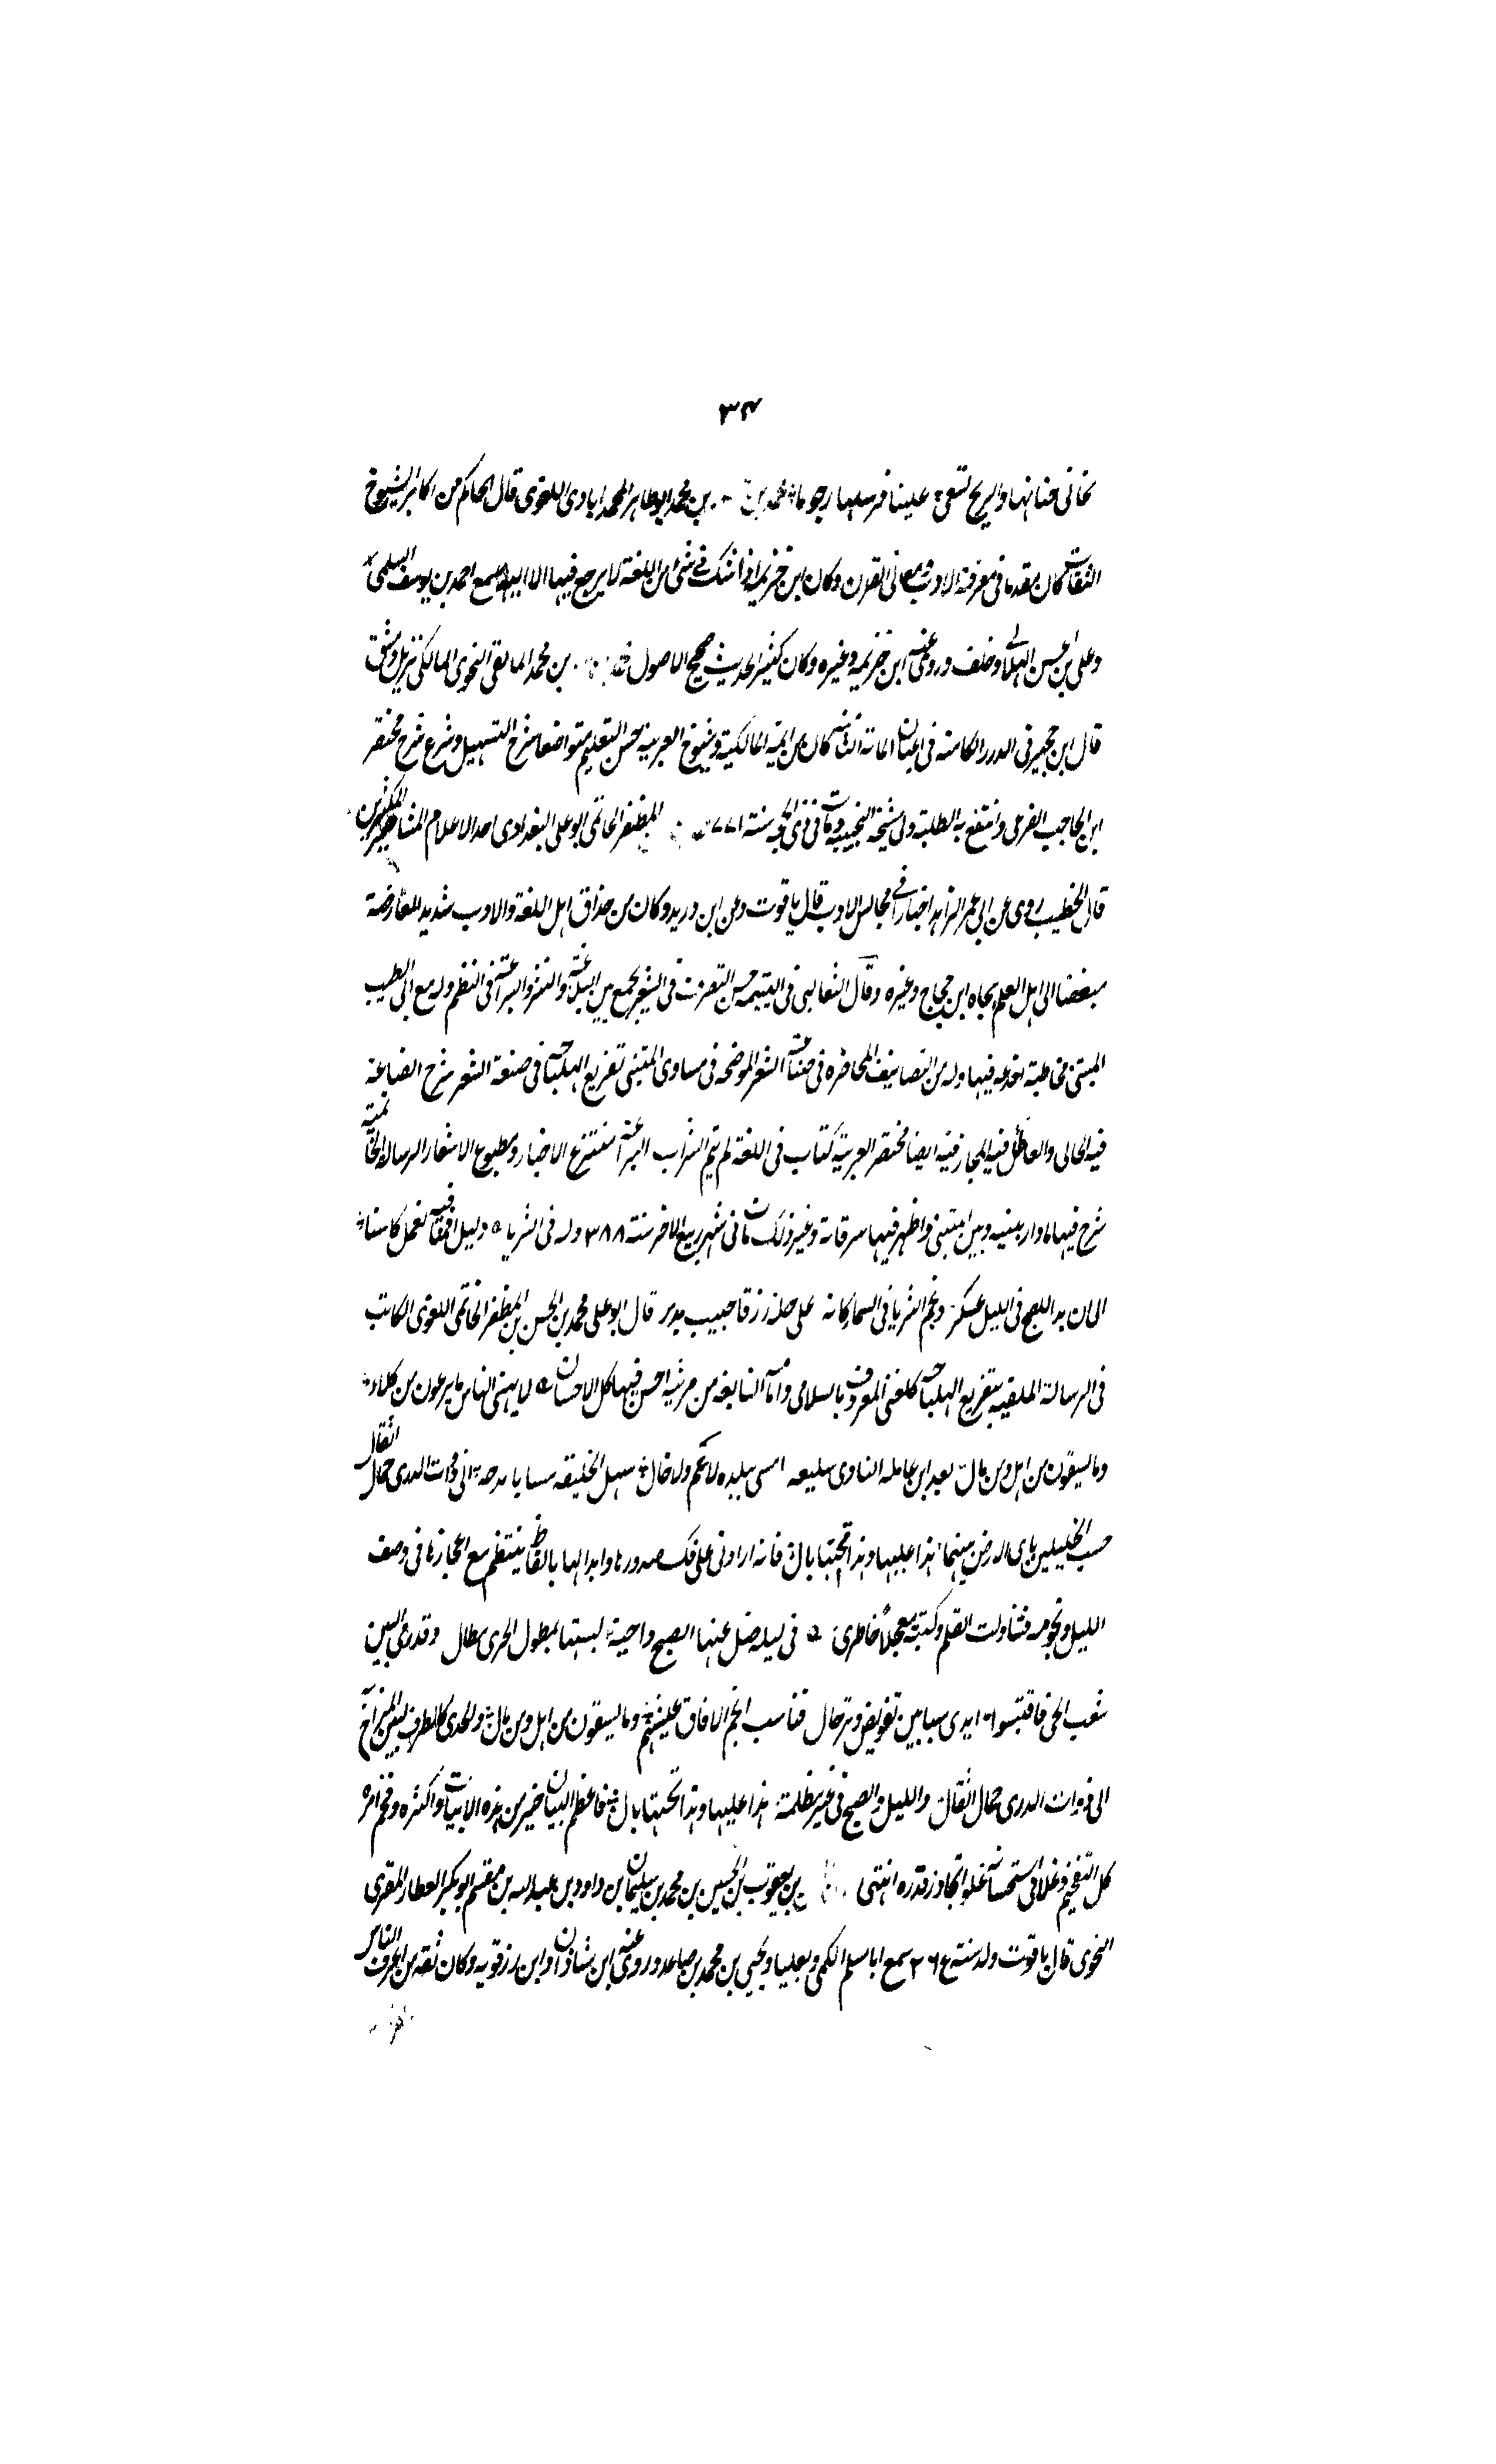 ٣٤
علينا فرسلها رجوما بن محمد ابو طاهر المحمدابادى اللغوى قال الحاكم من اكابر الشيوخ
الثقات كان مقدما فى معرفة الادب ومعانى القرن وكان ابن خزيمة اذا شك فى شئ من اللغة لا يرجع فيها الا اليه سمع احمد بن يوسف السلمى
وعلى بن الحسن الهلالى وخلف وروى عنه ابن خزيمه وغيره وكان كثير الحديث صحيح الاصول بن محمد المالقى النحوى المالكى نزيل دمشق
قال ابن حجر فى الدرر الكامنه فى اعيان المائة الثامنة كان من ايمة المالكية وشيوخ العربية حسن التعليم متواضعا شرح التسهيل وشرع شرح مختصر
ابن الحاجب الفرعى وانتفع به الطلبة ولى مشيخة النجيبية ومات فى ذى الحجة سنة ٧٧١ المظفر الحاتمى ابو على البغدادى احد الاعلام المشاهير المكثرين
قال الخطيب روى عن ابى عمر الزاهد اخبارا فى مجالس الادب قال ياقوت وعن ابن دريد وكان من حذاق اهل اللغة والادب شديد المعارضة
مبغضا الى اهل العلم هجاه ابن حجاج وغيره وقال الثعالبى فى اليتيمه حسن التصرف فى الشعر يجمع بين البلاغة والنثر والبراعة فى النظم وله مع ابى الطيب
المتنبى مخاطبة وله من التصانيف المحاضره فى صناعة الشعر الموضحه فى مساوى المتنبى تقريع الهلباجه فى صنعة الشعر شرح الصناعة
فيه الحالى والعاطل فيه المجاز فيه ايضا مختصر العربية كتاب فى اللغة لم يتم الشراب البراعة منتزع الاخبار ومطبوع الاشعار الرسالة الحاتمية
شرح فيها ما دار بينه وبين المتنبى واظهر فيها سرقاته وغير ذلك مات فى شهر ربيع الاخر سنة ٣٨٨ وله فى الثريا ٥ وليل اقمنا فيه نعمل كاسنا
الى ان بدا للصبح فى الليل عسكر ونجم الثريا فى السما كانه على حلة زرقا جيب مدنر قال ابو على محمد بن الحسن بن المظفر الحاتمى اللغوى الكاتب
فى الرسالة الملقبه بتقريع الهلباجه المعروف بالسلامى واما النابغه من مرثيه احسن فيها كل الاحسان ٥ لا يهنئ الناس ما يرعون من كلاء
وما يسوقون من اهل ومن مال بعد ابن عاملة الثاوى امسى ببلده لا عم ولا خال سهل الخليقه الى ذوات الذرى حمال اثقال
حسب الخليلين ناى الارض بينهما هذا عليها وهذا تحتها بالى فانه ارادنى على فك صدورها وابدالها بالفاظ ينتظم مع اعجازها فى وصف
الليل ونجومه فتناولت القلم وكتبت معجلا خاطرى ٥ فى ليله ضل عنها الصبح داجية لبستها بمطول الجرى مطال وقد رمى البين
شعب الحى فاقتسموا ايدى سبا بين تقويض وترحال فناسب انجم الافاق عيشهم وما يسوقون من اهل ومن مال والجدى كالطرف
الى ذوات الذرى حمال اثقال والليل والصبح فى مظلمة هذا عليها وهذا تحتها بالى البيان خير من هذه الابيات واكثره وفخم امره
كل التفخيم وغلا فى استحسانه غلوا تجاوز قدره انتهى بن يعقوب بن الحسين بن محمد بن سليمان بن داود بن عبيد الله بن مقسم ابو بكر العطار المقرى
النحوى قال ياقوت ولد سنة ٢٦٤ سمع ابا مسلم الكجى وثعلبا ويحيى بن محمد بن صاعد وروى عنه ابن شاذان وابن رزقويه وكان ثقه من اعرف الناس